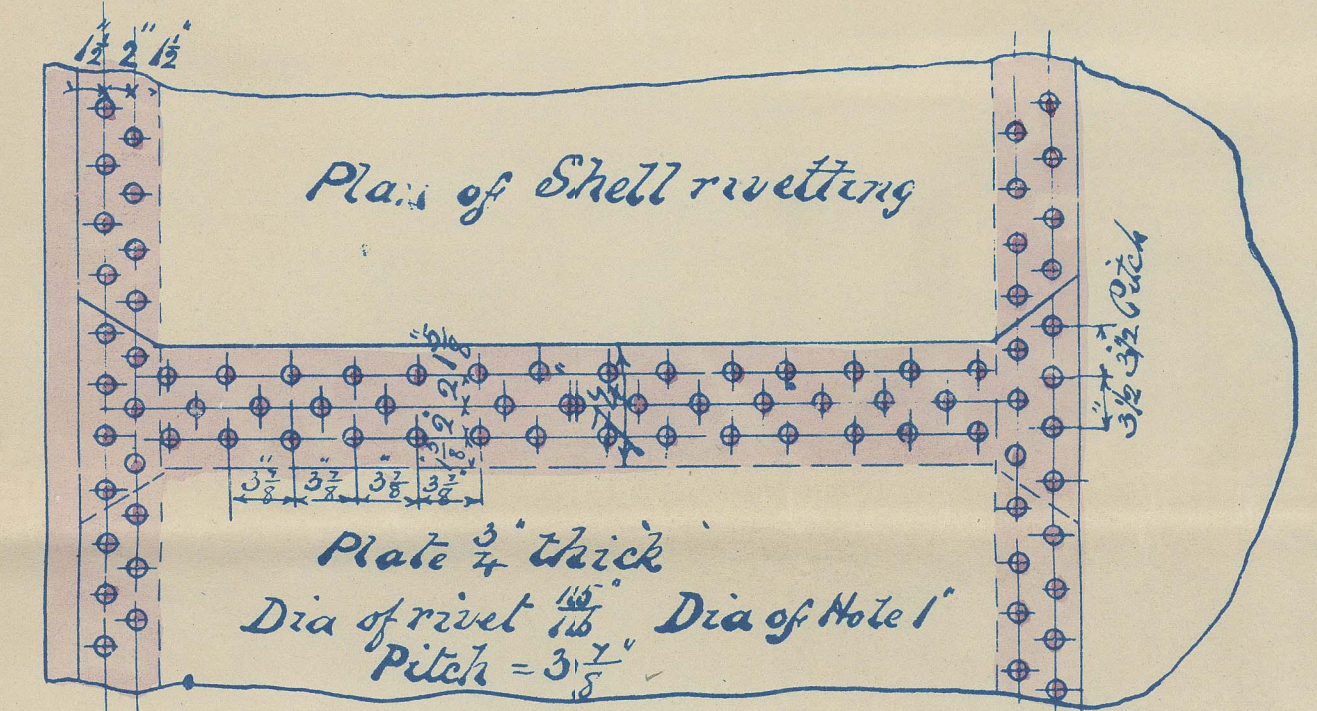 1½" 2" 1½"
Plan of Shell rivetting
1⅝"
2"
2"
3½ 3½ Pitch
3⅞" 3⅞" 3⅞" 3⅞"
Plate ¾" thick
Dia of rivet 15/16" Dia of Hole 1"
Pitch = 3⅞"